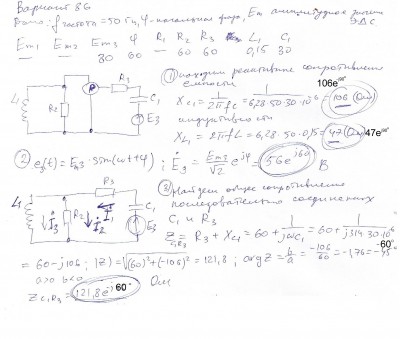 Вариант 86
Дано: f частота = 50 Гц, φ - начальная фаза, Em амплитудное значение ЭДС
Em1 Em2 Em3 φ R1 R2 R3 L1 C1
— — 80 60 — 60 60 0,15 30
① находим реактивное сопротивление
емкости
106e
Xc1 = 1/(2πfc) = 1/(6,28·50·30·10⁻⁶) = 106 (Ом)
индуктивности
XL1 = 2πfL = 6,28·50·0,15 = 47 (Ом) 47e
L1 R2 P R3 C1 E3
② e3(t) = Em3 · sin(ωt+φ); Ė3 = Em3/√2 e^jφ = 56e^j60 В
L1 R3 R2 C1 E3 I3 I2 I1
③ Найдем общее сопротивление
последовательно соединенных
C1 и R3
Z C1R3 = R3 + Xc1 = 60 + 1/(jωC1) = 60 + 1/(j314·30·10⁻⁶)
= 60 - j106; |Z| = √((60)² + (-106)²) = 121,8; arg Z = b/a = -106/60 = -1,76 = -60°
a>0 b<0
Z C1R3 = 121,8e^j 60° Ом